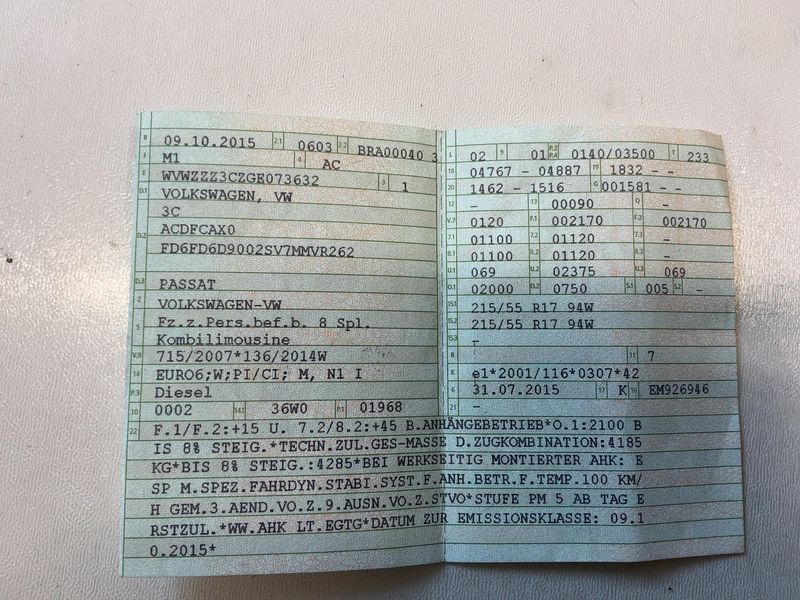 B 09.10.2015 2.1 0603 2.2 BRA00040 3
J M1 4 AC
E WVWZZZ3CZGE073632 3 1
D.1 VOLKSWAGEN, VW
3C
D.2 ACDFCAX0
FD6FD6D9002SV7MMVR262
D.3 PASSAT
2 VOLKSWAGEN-VW
5 Fz.z.Pers.bef.b. 8 Spl.
Kombilimousine
V.9 715/2007*136/2014W
14 EURO6;W;PI/CI; M, N1 I
P.3 Diesel
10 0002 14.1 36W0 P.1 01968
L 02 9 01 P.2 P.4 0140/03500 T 233
18 04767 - 04887 19 1832 - -
20 1462 - 1516 G 001581 - -
12 - 13 00090 Q -
V.7 0120 F.1 002170 F.2 002170
7.1 01100 7.2 01120 7.3 -
8.1 01100 8.2 01120 8.3 -
U.1 069 U.2 02375 U.3 069
O.1 02000 O.2 0750 S.1 005 S.2 -
15.1 215/55 R17 94W
15.2 215/55 R17 94W
15.3 -
R 11 7
K e1*2001/116*0307*42
6 31.07.2015 17 K 16 EM926946
21 -
22 F.1/F.2:+15 U. 7.2/8.2:+45 B.ANHÄNGEBETRIEB*O.1:2100 B
IS 8% STEIG.*TECHN.ZUL.GES-MASSE D.ZUGKOMBINATION:4185
KG*BIS 8% STEIG.:4285*BEI WERKSEITIG MONTIERTER AHK: E
SP M.SPEZ.FAHRDYN.STABI.SYST.F.ANH.BETR.F.TEMP.100 KM/
H GEM.3.AEND.VO.Z.9.AUSN.VO.Z.STVO*STUFE PM 5 AB TAG E
RSTZUL.*WW.AHK LT.EGTG*DATUM ZUR EMISSIONSKLASSE: 09.1
0.2015*